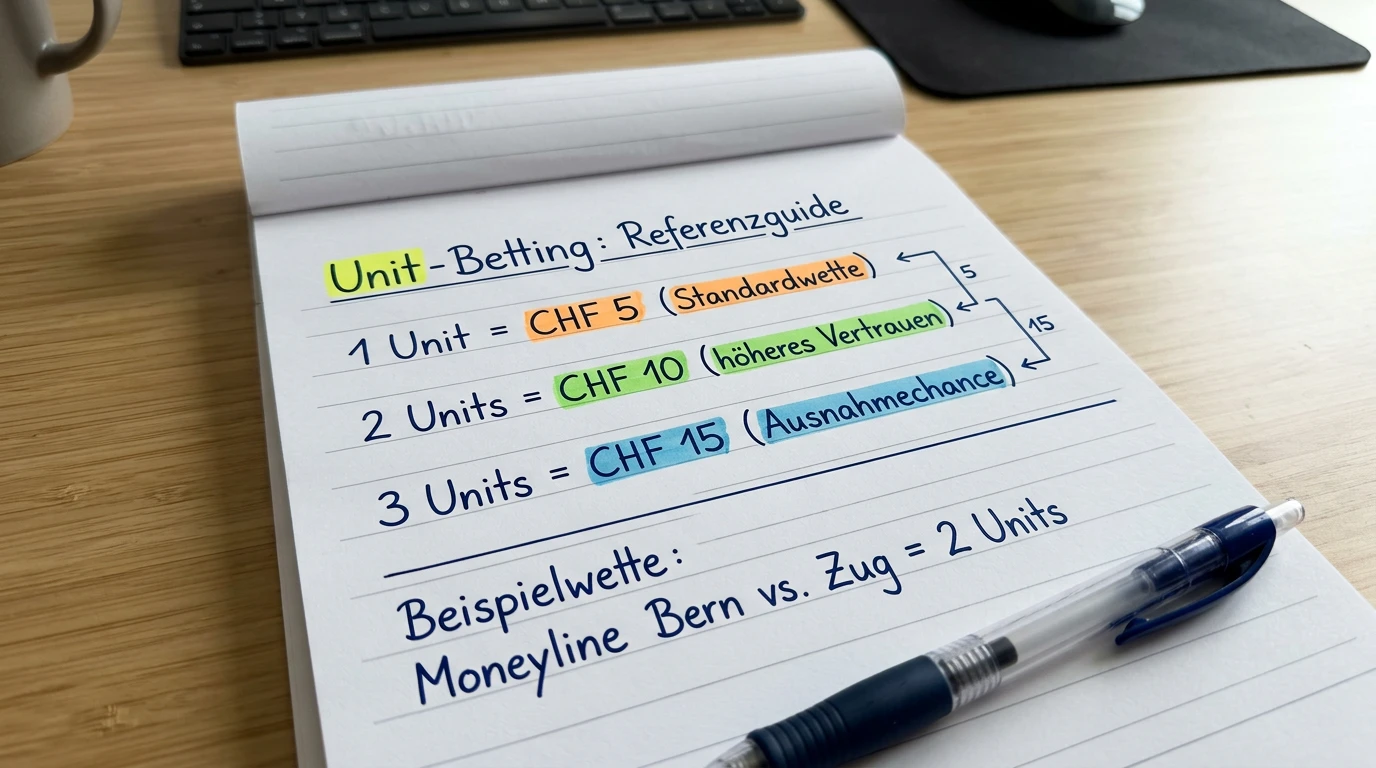 Unit-Betting: Referenzguide
1 Unit = CHF 5 (Standardwette)
5
2 Units = CHF 10 (höheres Vertrauen)
15
3 Units = CHF 15 (Ausnahmechance)
Beispielwette:
Moneyline Bern vs. Zug = 2 Units